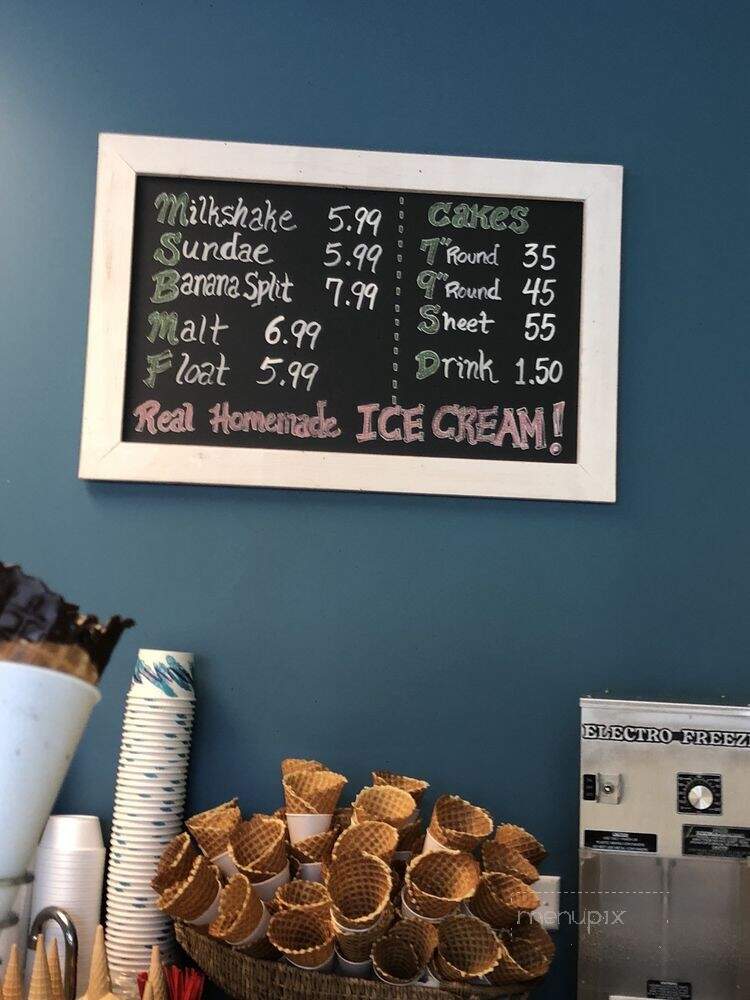 Milkshake 5.99
Sundae 5.99
Banana Split 7.99
Malt 6.99
Float 5.99
Cakes
7" Round 35
9" Round 45
Sheet 55
Drink 1.50
Real Homemade ICE CREAM!
ELECTRO FREEZ
menupix